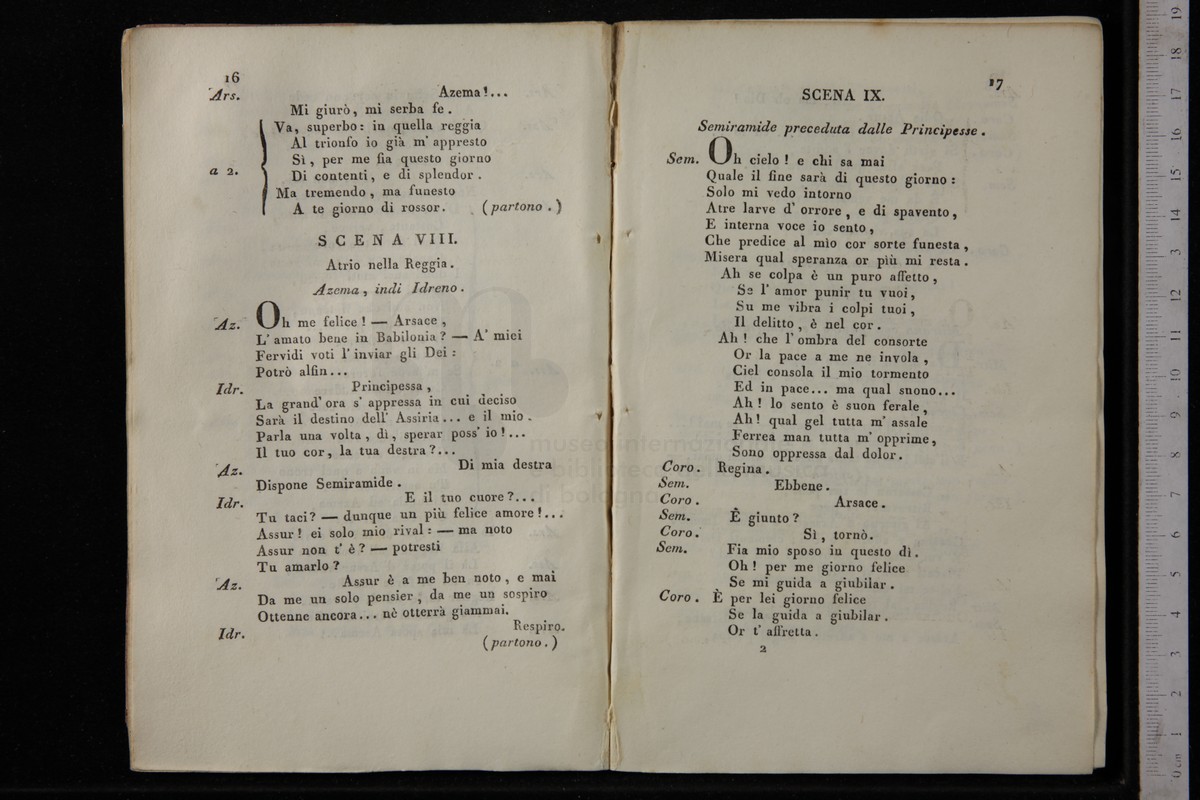 16
Ars. Azema!...
Mi giurò, mi serba fe.
a 2. Va, superbo: in quella reggia
Al trionfo io già m' appresto
Sì, per me fia questo giorno
Di contenti, e di splendor.
Ma tremendo, ma funesto
A te giorno di rossor. (partono.)
SCENA VIII.
Atrio nella Reggia.
Azema, indi Idreno.
Az. Oh me felice! — Arsace,
L' amato bene in Babilonia? — A' miei
Fervidi voti l' inviar gli Dei:
Potrò alfin...
Idr. Principessa,
La grand' ora s' appressa in cui deciso
Sarà il destino dell' Assiria... e il mio.
Parla una volta, dì, sperar poss' io!...
Il tuo cor, la tua destra?...
Az. Di mia destra
Dispone Semiramide.
Idr. E il tuo cuore?...
Tu taci? — dunque un più felice amore!...
Assur! ei solo mio rival: — ma noto
Assur non t' è? — potresti
Tu amarlo?
Az. Assur è a me ben noto, e mai
Da me un solo pensier, da me un sospiro
Ottenne ancora... nè otterrà giammai.
Idr. Respiro.
(partono.)
17
SCENA IX.
Semiramide preceduta dalle Principesse.
Sem. Oh cielo! e chi sa mai
Quale il fine sarà di questo giorno:
Solo mi vedo intorno
Atre larve d' orrore, e di spavento,
E interna voce io sento,
Che predice al mio cor sorte funesta,
Misera qual speranza or più mi resta.
Ah se colpa è un puro affetto,
Se l' amor punir tu vuoi,
Su me vibra i colpi tuoi,
Il delitto, è nel cor.
Ah! che l' ombra del consorte
Or la pace a me ne invola,
Ciel consola il mio tormento
Ed in pace... ma qual suono...
Ah! lo sento è suon ferale,
Ah! qual gel tutta m' assale
Ferrea man tutta m' opprime,
Sono oppressa dal dolor.
Coro. Regina.
Sem. Ebbene.
Coro. Arsace.
Sem. È giunto?
Coro. Sì, tornò.
Sem. Fia mio sposo in questo dì.
Oh! per me giorno felice
Se mi guida a giubilar.
Coro. È per lei giorno felice
Se la guida a giubilar.
Or t' affretta.
2
museo internazionale
e biblioteca della musica
di bologna
0 cm 1 2 3 4 5 6 7 8 9 10 11 12 13 14 15 16 17 18 19